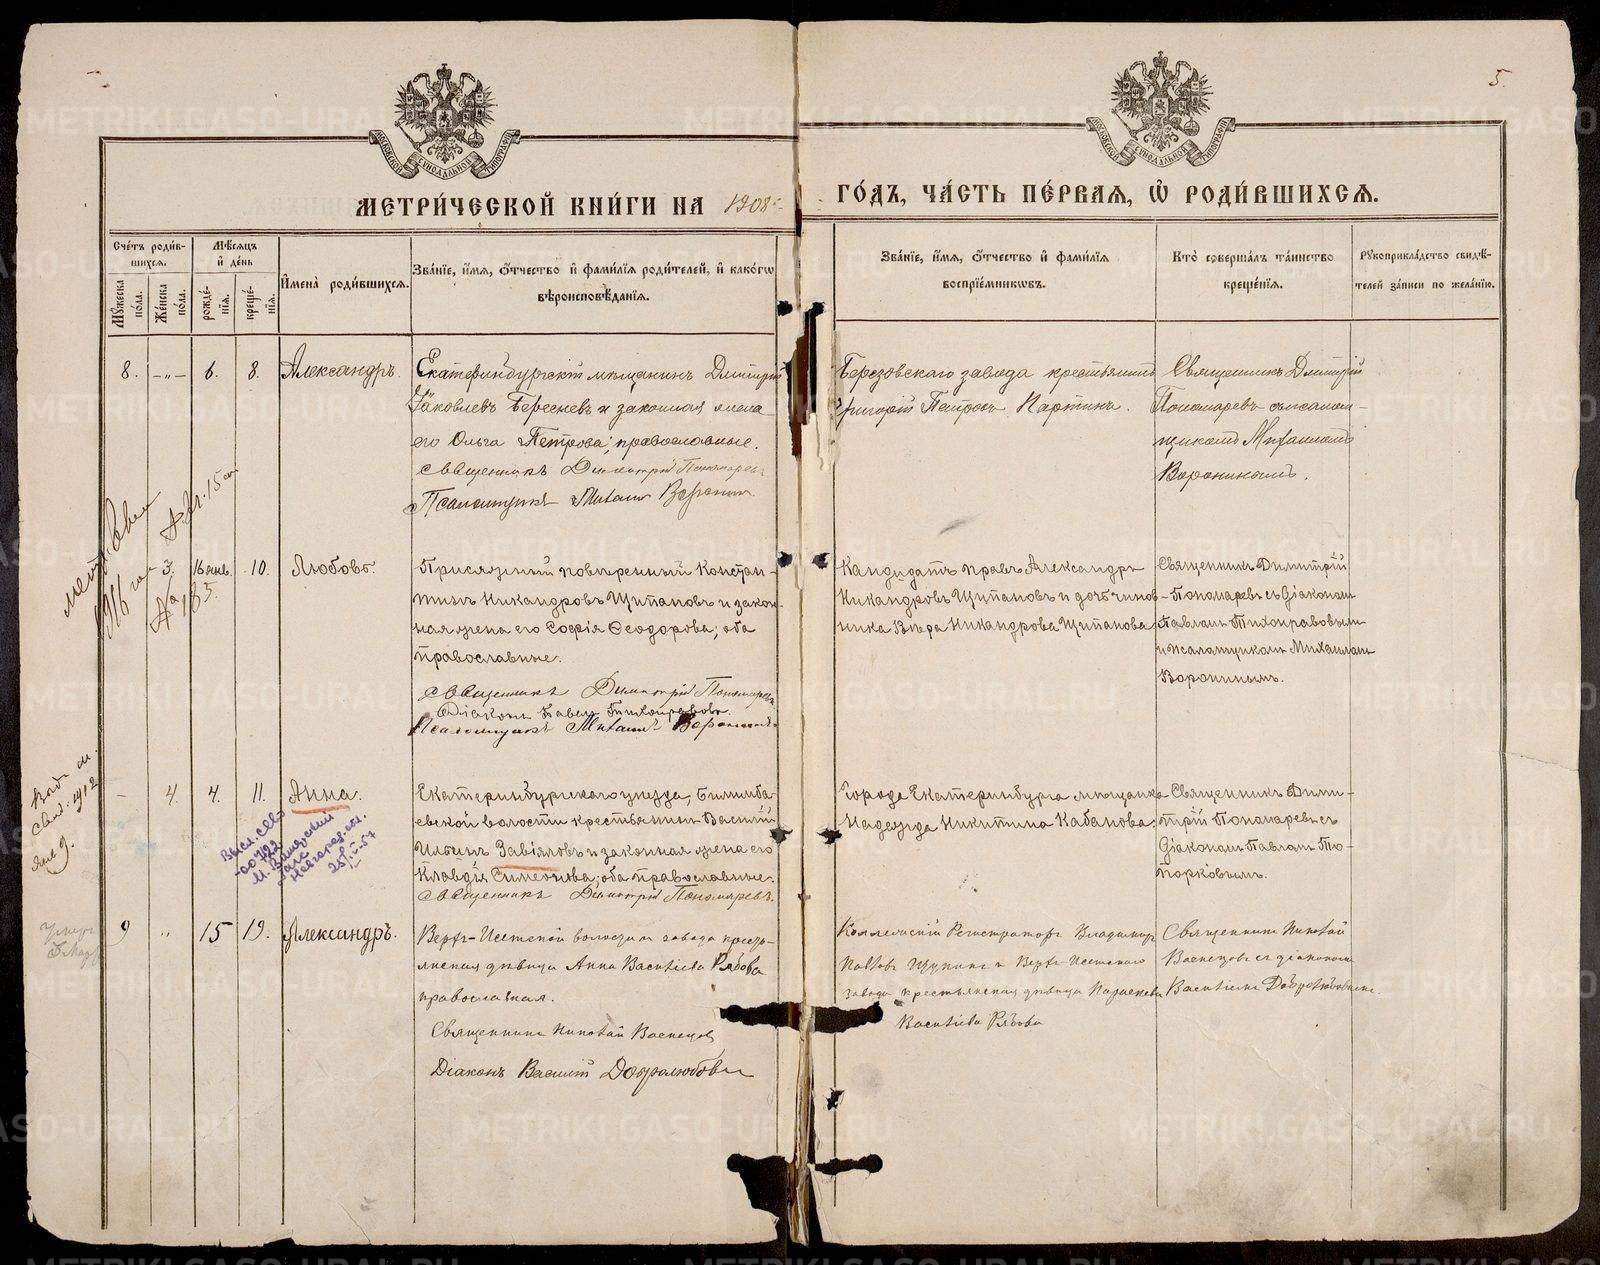 5.
МОСКОВСКОЙ СѴНОДАЛЬНОЙ ТИПОГРАФІИ
МОСКОВСКОЙ СѴНОДАЛЬНОЙ ТИПОГРАФІИ
МЕТРИ́ЧЕСКОЙ КНИ́ГИ НА 1908 ГО́ДЪ, ЧА́СТЬ ПЕ́РВАЯ, Ѡ РОДИ́ВШИХСЯ.
Сче́тъ роди́в-
шихся.
Мꙋ́жеска по́ла.
Же́нска по́ла.
Мѣ́сяцъ
и҆ де́нь
рожде́-
нїя.
креще́-
нїя.
И҆мена̀ роди́вшихся.
Зва́нїе, и҆́мя, ѻ҆́тчество и҆ фами́лїя роди́телей, и҆ како́гѡ
вѣроисповѣ́данїя.
Зва́нїе, и҆́мя, ѻ҆́тчество и҆ фами́лїя
воспрїе́мникѡвъ.
Кто̀ соверша́лъ та́инство
креще́нїя.
Рꙋкоприкла́дство свидѣ́-
телей за́писи по жела́нїю.
8. -„- 6. 8. Александръ.
Екатеринбургскій мѣщанинъ Димитрій
Іаковлевъ Бересневъ и законная жена
его Ольга Петрова; православные.
Священникъ Димитрій Пономаревъ
Псаломщикъ Михаилъ Воронинъ
Березовскаго завода крестьянинъ
Григорій Петровъ Партинъ.
Священникъ Димитрій
Пономаревъ съ псалом-
щикомъ Михаиломъ
Воронинымъ.
1916
№ 185.
3. 16 янв. 10. Любовь.
Присяжный повѣренный Констан-
тинъ Никандровъ Щипановъ и закон-
ная жена его Софія Ѳеодорова; оба
православные.
Священникъ Димитрій Пономаревъ
Діаконъ Павелъ Тихонравовъ
Псаломщикъ Михаилъ Воронинъ
Кандидатъ правъ Александръ
Никандровъ Щипановъ и дочь чинов-
ника Вѣра Никандрова Щипанова
Священникъ Димитрій
Пономаревъ съ діакономъ
Павломъ Тихонравовымъ
и псаломщикомъ Михаиломъ
Воронинымъ.
1912
янв 9.
- 4. 4. 11. Анна.
Екатеринбургскаго уѣзда, Билимба-
евской волости крестьянинъ Василій
Ильинъ Завьяловъ и законная жена его
Клавдія Симеонова; оба православные.
Священникъ Димитрій Пономаревъ.
Города Екатеринбурга мѣщанка
Надежда Никитина Кабанова.
Священникъ Дими-
трій Пономаревъ съ
Діакономъ Павломъ То-
порковымъ.
9 „ 15 19. Александръ.
Верхъ-Исетской волости и завода кресть-
янская дѣвица Анна Васильева Рябова
православная.
Священникъ Николай Васнецовъ
Діаконъ Василій Добролюбовъ
Коллежскій Регистраторъ Владимиръ
Павловъ Щукинъ и Верхъ-Исетскаго
завода крестьянская дѣвица Параскева
Васильева Рябова
Священникъ Николай
Васнецовъ съ діакономъ
Василіемъ Добролюбовымъ.
METRIKI.GASO-URAL.RU